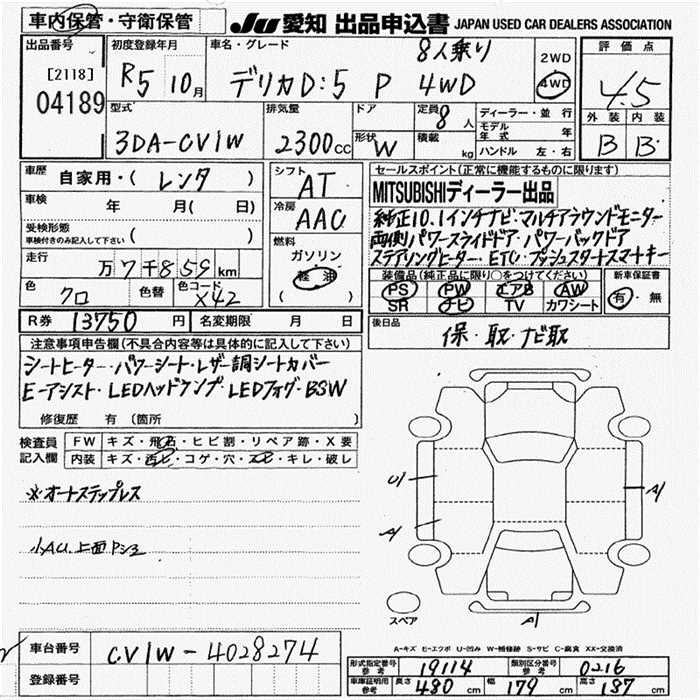 車内保管・守衛保管
JU 愛知 出品申込書 JAPAN USED CAR DEALERS ASSOCIATION
出品番号
[2118]
04189
初度登録年月
R5 10月
車名・グレード
8人乗り
デリカD:5 P 4WD
2WD
4WD
評価点
4.5
外装 内装
B B
型式
3DA-CV1W
排気量
2300cc
ドア
形状 W
定員 8人
積載 kg
ディーラー・並行
モデル年式 年
ハンドル 左・右
車歴
自家用・(レンタ)
車検 年 月( 日)
受検形態
車検付きのみ記入して下さい ( )
走行
万7千859km
色 クロ
色替
色コード X42
シフト
AT
冷房
AAC
燃料
ガソリン
軽油
( )
セールスポイント(正常に機能するものに限ります)
MITSUBISHIディーラー出品
純正10.1インチナビ・マルチアラウンドモニター
両側パワースライドドア・パワーバックドア
ステアリングヒーター・ETC・プッシュスタートスマートキー
装備品(純正品に限り○をつけてください)
PS PW エアB AW
SR ナビ TV カワシート
新車保証書
有・無
R券 13750円
名変期限 月 日
後日品
保・取・ナビ取
注意事項申告欄(不具合内容等は具体的に記入して下さい)
シートヒーター・パワーシート・レザー調シートカバー
E-アシスト・LEDヘッドランプ・LEDフォグ・BSW
修復歴 有(箇所 )
検査員記入欄
FW キズ・飛石・ヒビ割・リペア跡・X要
内装 キズ・コゲ・穴・キレ・破レ
※オートステップレス
上面
U1
A1
A1
A1
スペア
A-キズ E-エクボ U-凹み W-補修跡 S-サビ C-腐食 XX-交換済
車台番号 CV1W-4028274
登録番号
形式指定番号 参考 19114
類別区分番号 参考 0216
車庫証明用 参考 長さ 480cm 幅 179cm 高さ 187cm